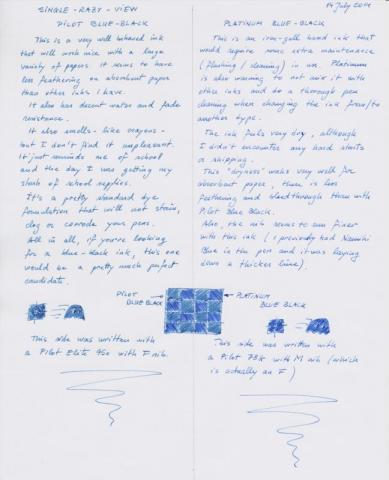 SINGLE-RAZY-VIEW
PILOT BLUE-BLACK
This is a very well behaved ink
that will work nice with a large
variety of papers. It seems to have
less feathering on absorbent paper
than other inks I have.
It also has decent water and fade
resistance.
It also smells like crayons -
but I don't find it unpleasant.
It just reminds me of school
and the day I was getting my
stash of school supplies.
It's a pretty standard dye
foundation that will not stain,
clog or corrode your pens.
All in all, if you're looking
for a blue-black ink, this one
would be a pretty much perfect
candidate.
PILOT
BLUE BLACK
This side was written with
a Pilot Elite 95s with F nib.
14 July 2014
PLATINUM BLUE-BLACK
This is an iron-gall hand ink that
would require some extra maintenance
(flushing / cleaning) in use. Platinum
is also warning to not mix it with
other inks and do a thorough pen
cleaning when changing the ink from/to
another type.
The ink feels very dry, although
I didn't encounter any hard starts
or skipping.
This "dryness" works very well for
absorbent paper, there is less
feathering and bleedthrough than with
Pilot Blue Black.
Also, the nib seems to run finer
with this ink (I previously had Namiki
Blue in the pen and it was laying
down a thicker line).
PLATINUM
BLUE BLACK
This side was written with
a Pilot 78G with M nib (which
is actually an F)